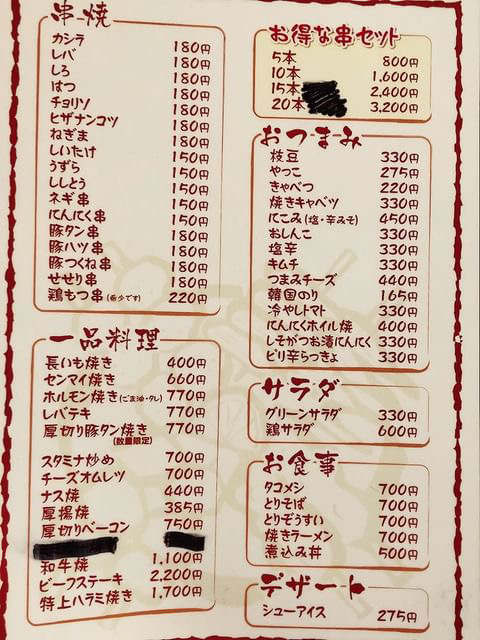 串焼
カシラ 180円
レバ 180円
しろ 180円
はつ 180円
チョリソ 180円
ヒザナンコツ 180円
ねぎま 180円
しいたけ 150円
うずら 150円
ししとう 150円
ネギ串 150円
にんにく串 150円
豚タン串 180円
豚ハツ串 180円
豚つくね串 180円
せせり串 180円
鶏もつ串(希少です) 220円
一品料理
長いも焼き 400円
センマイ焼き 660円
ホルモン焼き(ごま油・タレ) 770円
レバテキ 770円
厚切り豚タン焼き 770円
(数量限定)
スタミナ炒め 700円
チーズオムレツ 700円
ナス焼 440円
厚揚焼 385円
厚切りベーコン 750円
和牛焼 1,100円
ビーフステーキ 2,200円
特上ハラミ焼き 1,700円
お得な串セット
5本 800円
10本 1,600円
15本 2,400円
20本 3,200円
おつまみ
枝豆 330円
やっこ 275円
きゃべつ 220円
焼きキャベツ 330円
にこみ(塩・辛みそ) 450円
おしんこ 330円
塩辛 330円
キムチ 330円
つまみチーズ 440円
韓国のり 165円
冷やしトマト 330円
にんにくホイル焼 400円
しそがつお漬にんにく 330円
ピリ辛らっきょ 330円
サラダ
グリーンサラダ 330円
鶏サラダ 600円
お食事
タコメシ 700円
とりそば 700円
とりぞうすい 700円
焼きラーメン 700円
煮込み丼 500円
デザート
シューアイス 275円